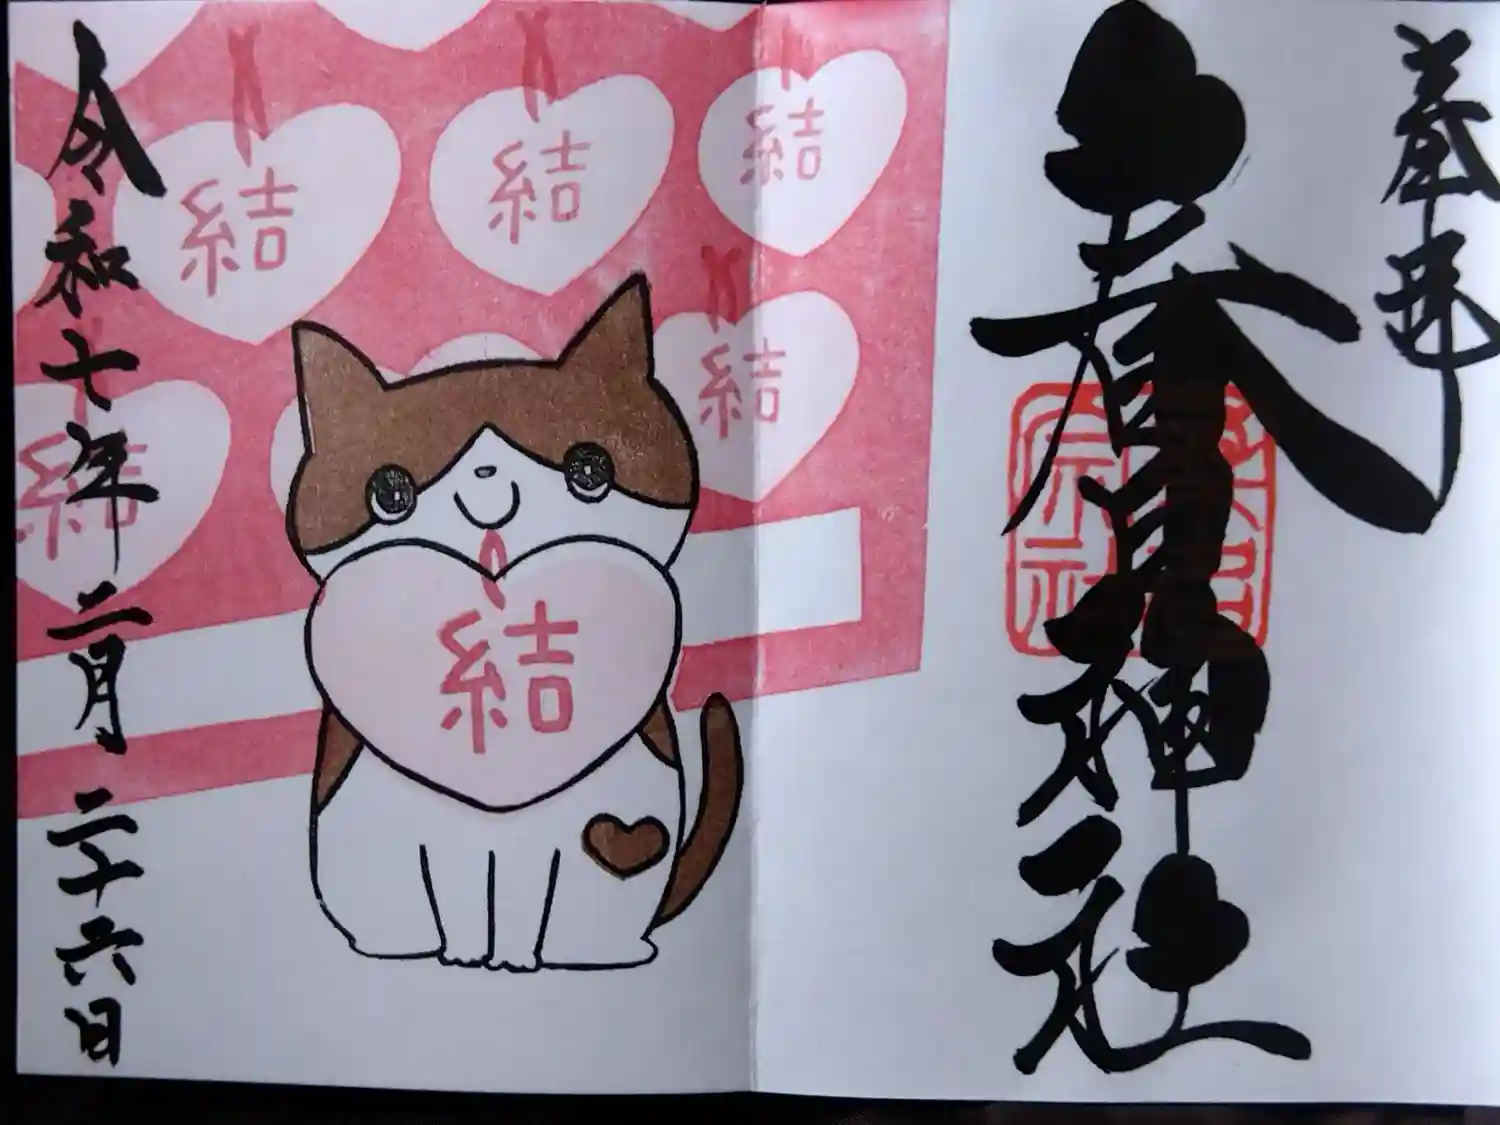 奉拝
春日神社
結
結
結
結
結
結
令和七年二月二十六日